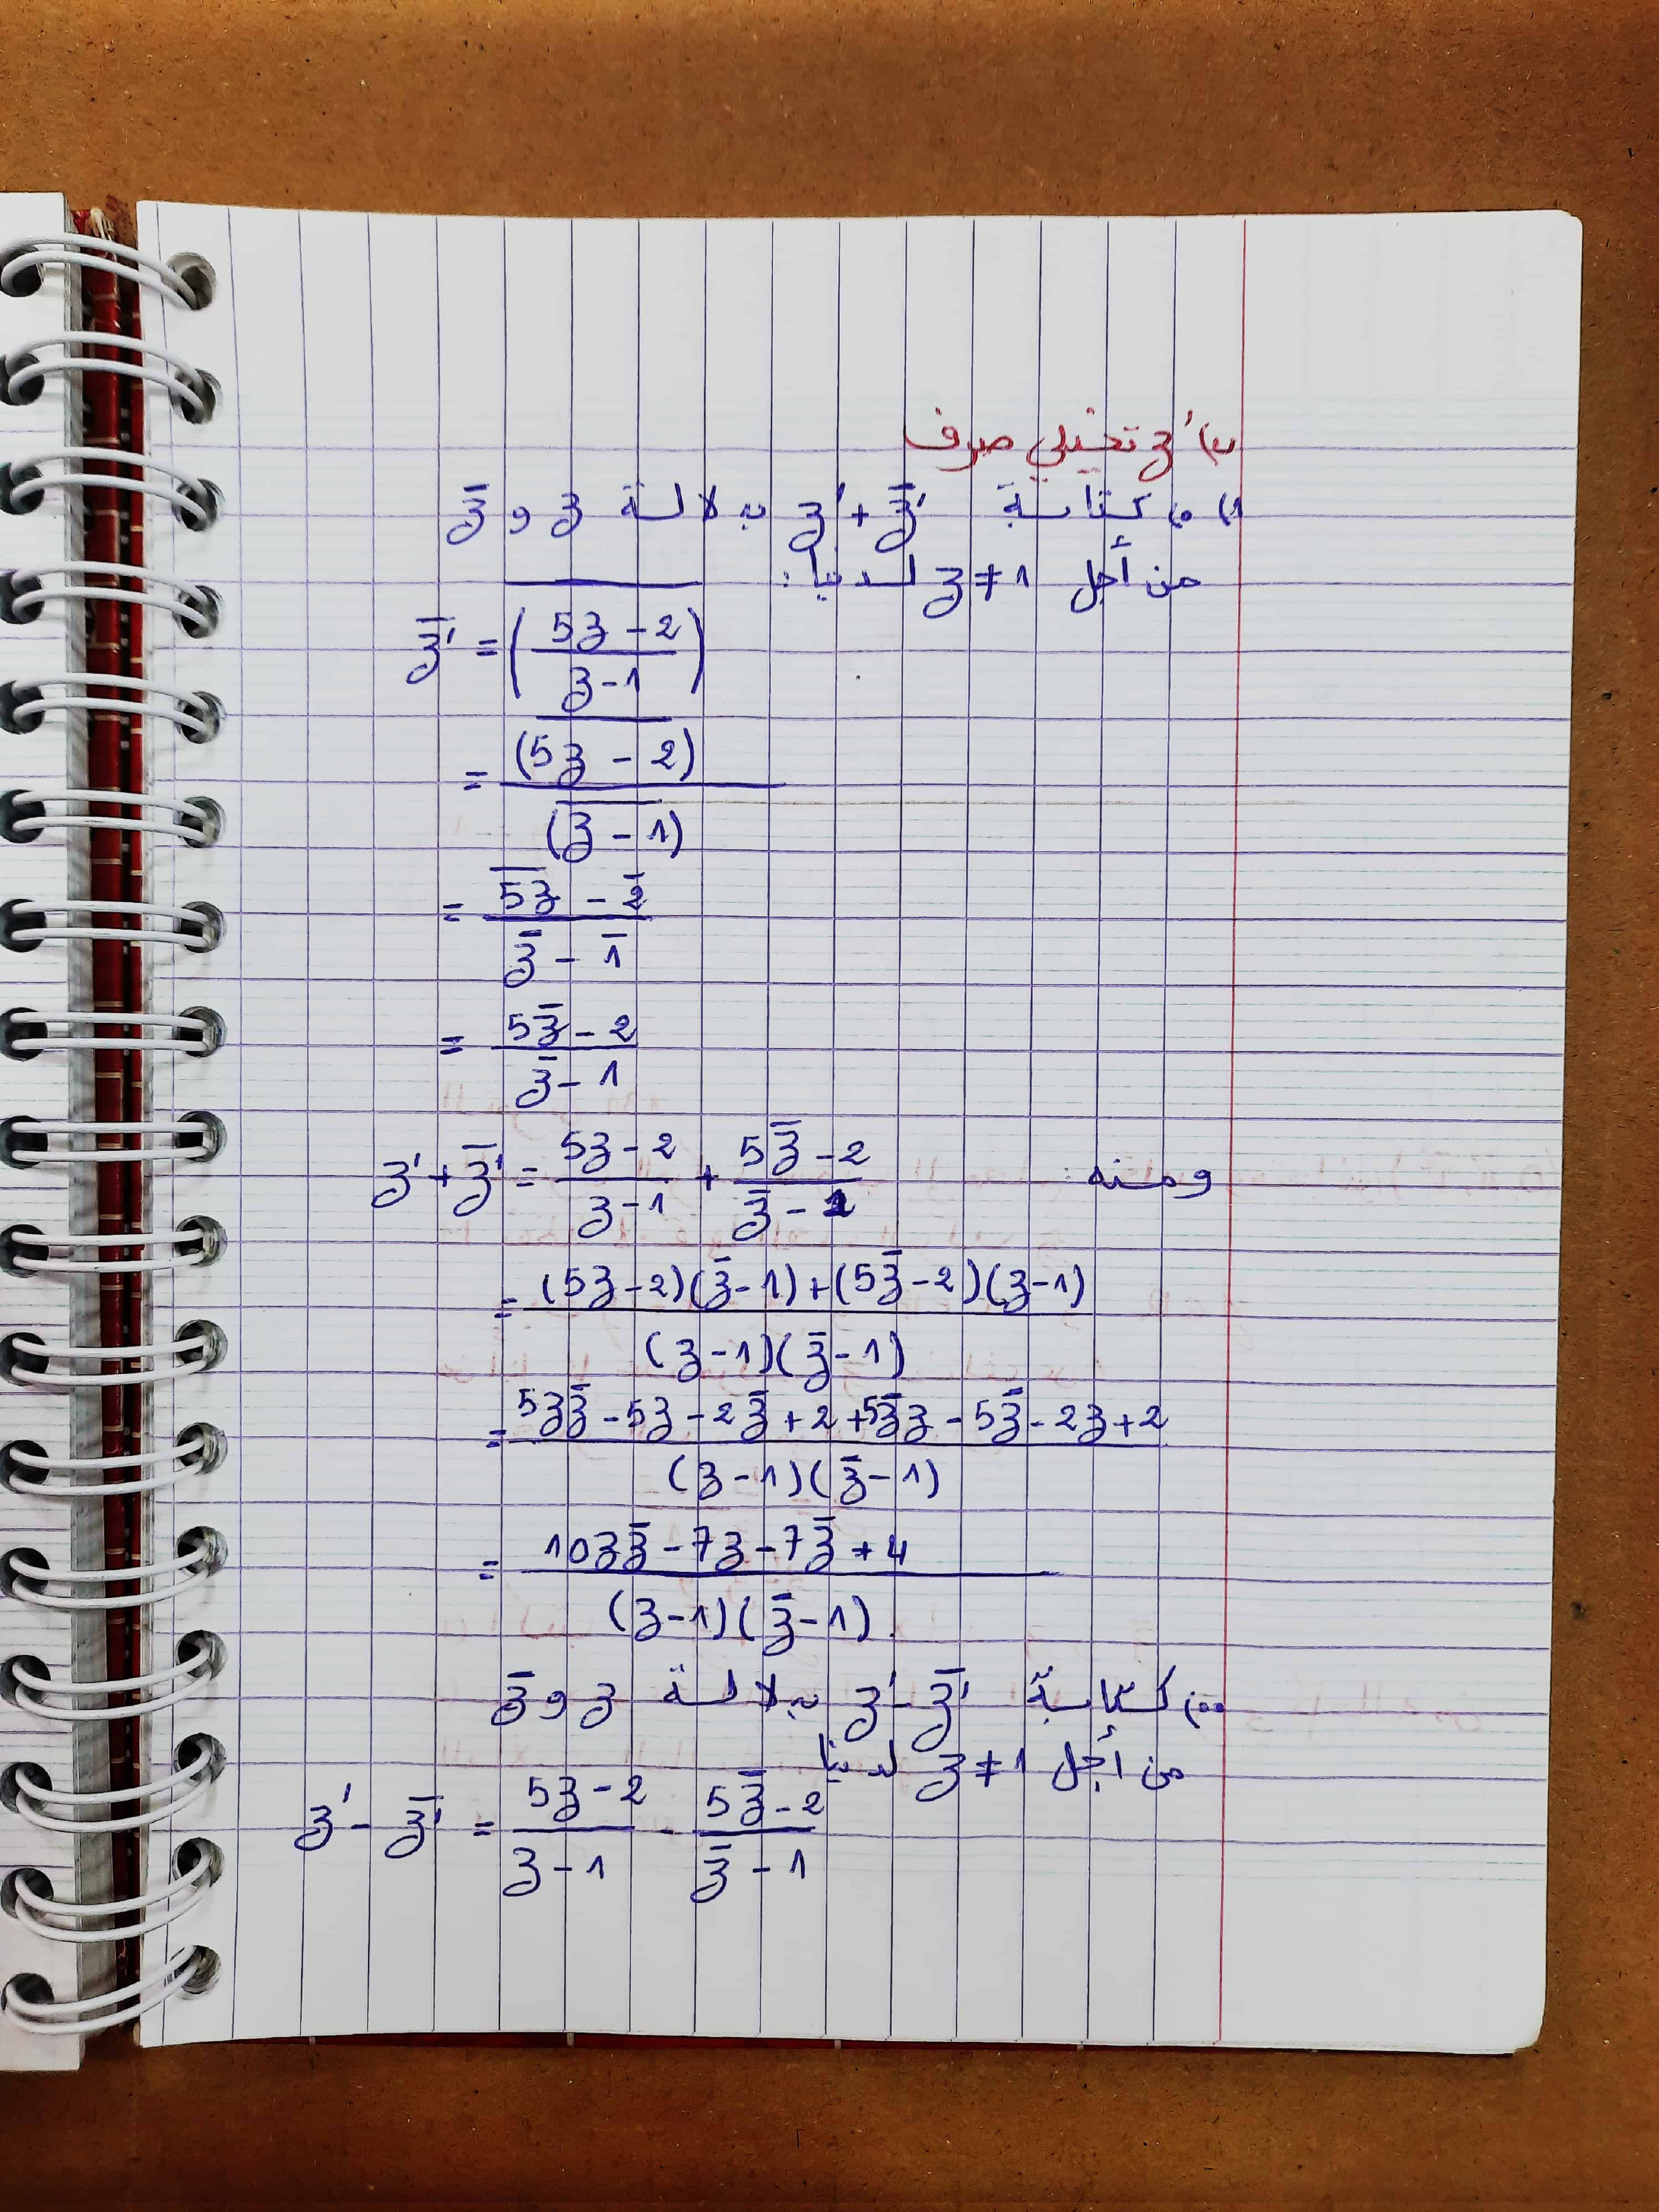 ب) z' تخيلي صرف
1) • كتابة z' + z̅' بدلالة z و z̅
من أجل z ≠ 1 لدينا :
z̅' = \overline{( (5z - 2) / (z - 1) )}
= \overline{(5z - 2)} / \overline{(z - 1)}
= (\overline{5z} - \overline{2}) / (z̅ - \overline{1})
= (5z̅ - 2) / (z̅ - 1)
ومنه : z' + z̅' = (5z - 2) / (z - 1) + (5z̅ - 2) / (z̅ - 1)
= ((5z - 2)(z̅ - 1) + (5z̅ - 2)(z - 1)) / ((z - 1)(z̅ - 1))
= (5zz̅ - 5z - 2z̅ + 2 + 5z̅z - 5z̅ - 2z + 2) / ((z - 1)(z̅ - 1))
= (10zz̅ - 7z - 7z̅ + 4) / ((z - 1)(z̅ - 1)).
•• كتابة z' - z̅' بدلالة z و z̅
من أجل z ≠ 1 لدينا
z' - z̅' = (5z - 2) / (z - 1) - (5z̅ - 2) / (z̅ - 1)